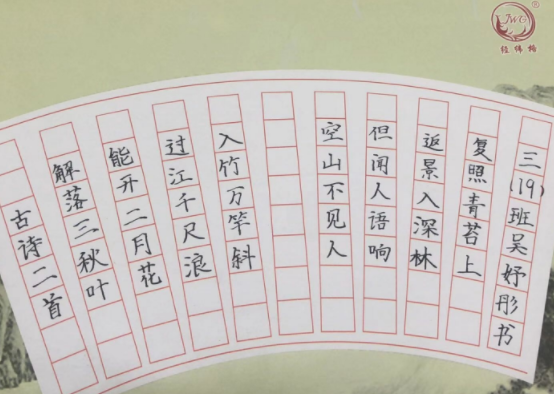 JWG®
古诗二首
解落三秋叶
能开二月花
过江千尺浪
入竹万竿斜
空山不见人
但闻人语响
返景入深林
复照青苔上
三(19)班吴妤彤书